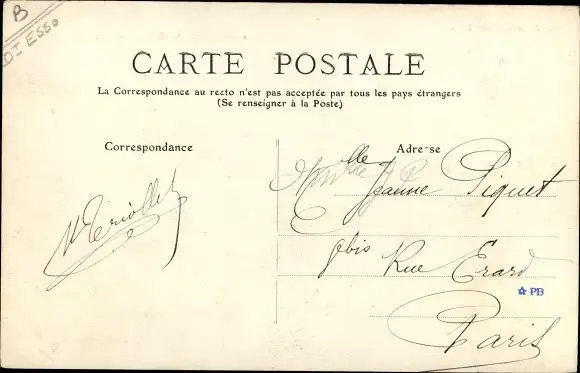 B
Dt ESSO
CARTE POSTALE
La Correspondance au recto n'est pas acceptée par tous les pays étrangers
(Se renseigner à la Poste)
Correspondance
Adresse
Triollet
lle Jeanne Piquet
bis Rue Erard
PB
Paris